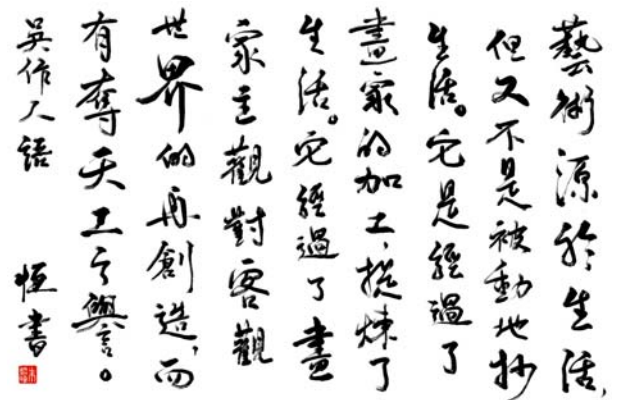 藝術源於生活，
但又不是被動地抄
生活。它是經過了
畫家的加工、提煉了
生活。它經過了畫
家主觀對客觀
世界的再創造，而
有奪天工之譽。
吳作人語
恒書